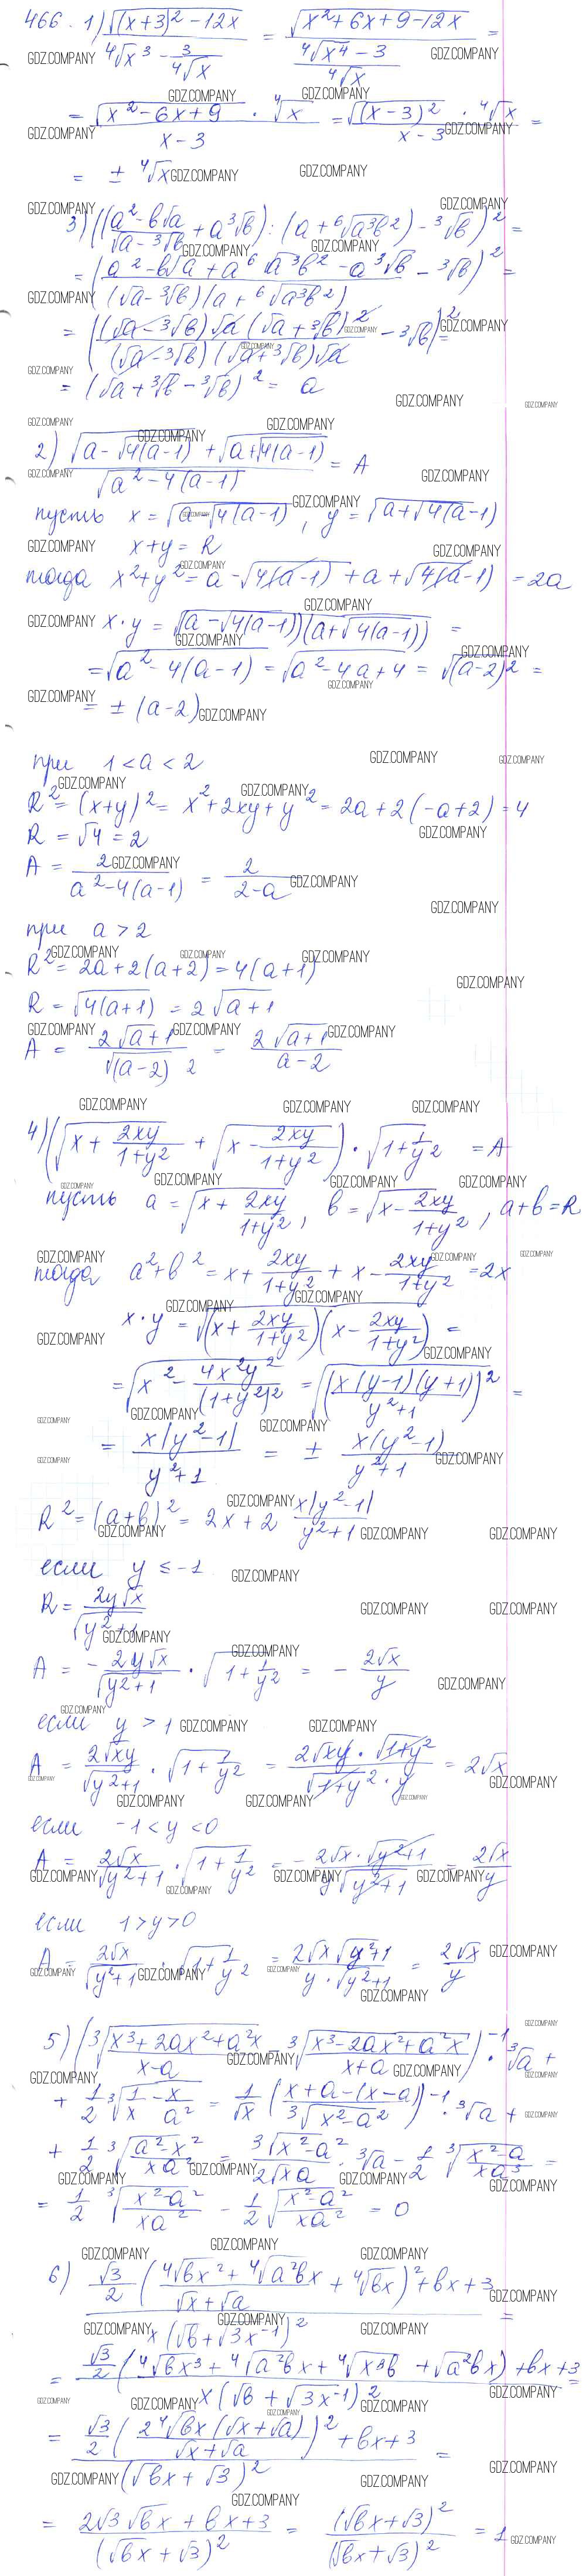 466. 1) √((x+3)² - 12x) / (⁴√x³ - 3/⁴√x) = √(x² + 6x + 9 - 12x) / ((⁴√x⁴ - 3)/⁴√x) =
= √(x² - 6x + 9) · ⁴√x / (x - 3) = √((x-3)²) · ⁴√x / (x - 3) =
= ± ⁴√x
3) ((a² - b√a)/(√a - ³√b) + a³√b) : (a + ⁶√(a³b²) - ³√b)² =
= ((a² - b√a + a⁶√(a³b²) - a³√b)/((√a - ³√b)(a + ⁶√(a³b²))) - ³√b)² =
= (((√a - ³√b)√a(√a + ³√b)²)/((√a - ³√b)(√a + ³√b)√a) - ³√b)² =
= (√a + ³√b - ³√b)² = a
2) (√(a - √4(a-1)) + √(a + √4(a-1))) / √(a² - 4(a-1)) = A
пусть x = √(a - √4(a-1)), y = √(a + √4(a-1))
x + y = R
тогда x² + y² = a - √4(a-1) + a + √4(a-1) = 2a
x · y = √((a - √4(a-1))(a + √4(a-1))) =
= √(a² - 4(a-1)) = √(a² - 4a + 4) = √(a-2)² =
= ± (a-2)
при 1 < a < 2
R² = (x+y)² = x² + 2xy + y² = 2a + 2(-a+2) = 4
R = √4 = 2
A = 2/(a² - 4(a-1)) = 2/(2-a)
при a > 2
R² = 2a + 2(a+2) = 4(a+1)
R = √4(a+1) = 2√(a+1)
A = 2√(a+1)/√(a-2)² = 2√(a+1)/(a-2)
4) (√(x + 2xy/(1+y²)) + √(x - 2xy/(1+y²))) · √(1 + 1/y²) = A
пусть a = √(x + 2xy/(1+y²)), b = √(x - 2xy/(1+y²)), a+b = R
тогда a² + b² = x + 2xy/(1+y²) + x - 2xy/(1+y²) = 2x
x · y = √((x + 2xy/(1+y²))(x - 2xy/(1+y²))) =
= √(x² - 4x²y²/(1+y²)²) = √((x(y-1)(y+1))/(y²+1))² =
= x|y²-1|/(y²+1) = ± x(y²-1)/(y²+1)
R² = (a+b)² = 2x + 2 x|y²-1|/(y²+1)
если y ≤ -1
R = 2y√x/√(y²+1)
A = - 2y√x/√(y²+1) · √(1 + 1/y²) = - 2√x/y
если y > 1
A = 2√xy/√(y²+1) · √(1 + 1/y²) = 2√xy · √(1+y²)/(√(1+y²) · y) = 2√x
если -1 < y < 0
A = 2√x/√(y²+1) · √(1 + 1/y²) = - 2√x · √(y²+1)/(y√(y²+1)) = 2√x/y
если 1 > y > 0
A = 2√x/√(y²+1) · √(1 + 1/y²) = 2√x√(y²+1)/(y · √(y²+1)) = 2√x/y
5) (³√((x³ + 2ax² + a²x)/(x-a)) - ³√((x³ - 2ax² + a²x)/(x+a)))⁻¹ · ³√a +
+ 1/2 ³√(1/x - x/a²) = 1/√x ((x+a-(x-a))/³√(x²-a²))⁻¹ · ³√a +
+ 1/2 ³√((a²-x²)/xa²) = ³√(x²-a²)/(2√xa) · ³√a - 1/2 ³√((x²-a)/xa³) =
= 1/2 ³√((x²-a²)/xa²) - 1/2 √((x²-a²)/xa²) = 0
6) (√3/2 ((⁴√bx² + ⁴√a²bx)/(√x + √a) + ⁴√bx)² + bx + 3) / (x(√b + √3x⁻¹)²) =
= (√3/2 (⁴√bx³ + ⁴√a²bx + ⁴√x³b + √a²bx) + bx + 3) / (x(√b + √3x⁻¹)²) =
= (√3/2 (2⁴√bx(√x + √a)/(√x + √a))² + bx + 3) / (√bx + √3)² =
= (2√3√bx + bx + 3)/(√bx + √3)² = (√bx + √3)²/(√bx + √3)² = 1
GDZ.COMPANY